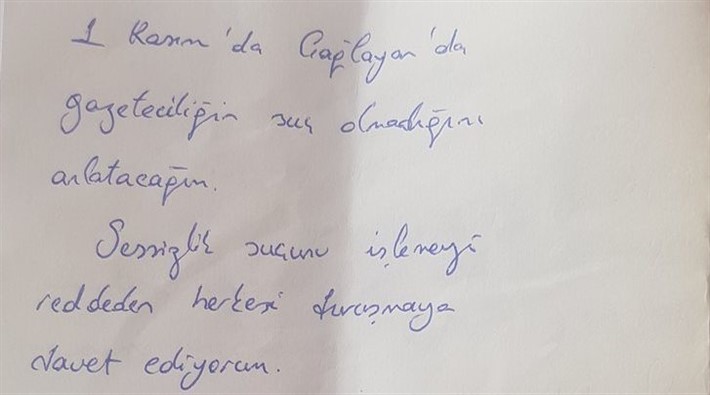 1 Kasım'da Çağlayan'da
gazeteciliğin suç olmadığını
anlatacağım.
Sessizlik suçunu işlemeyi
reddeden herkesi duruşmaya
davet ediyorum.